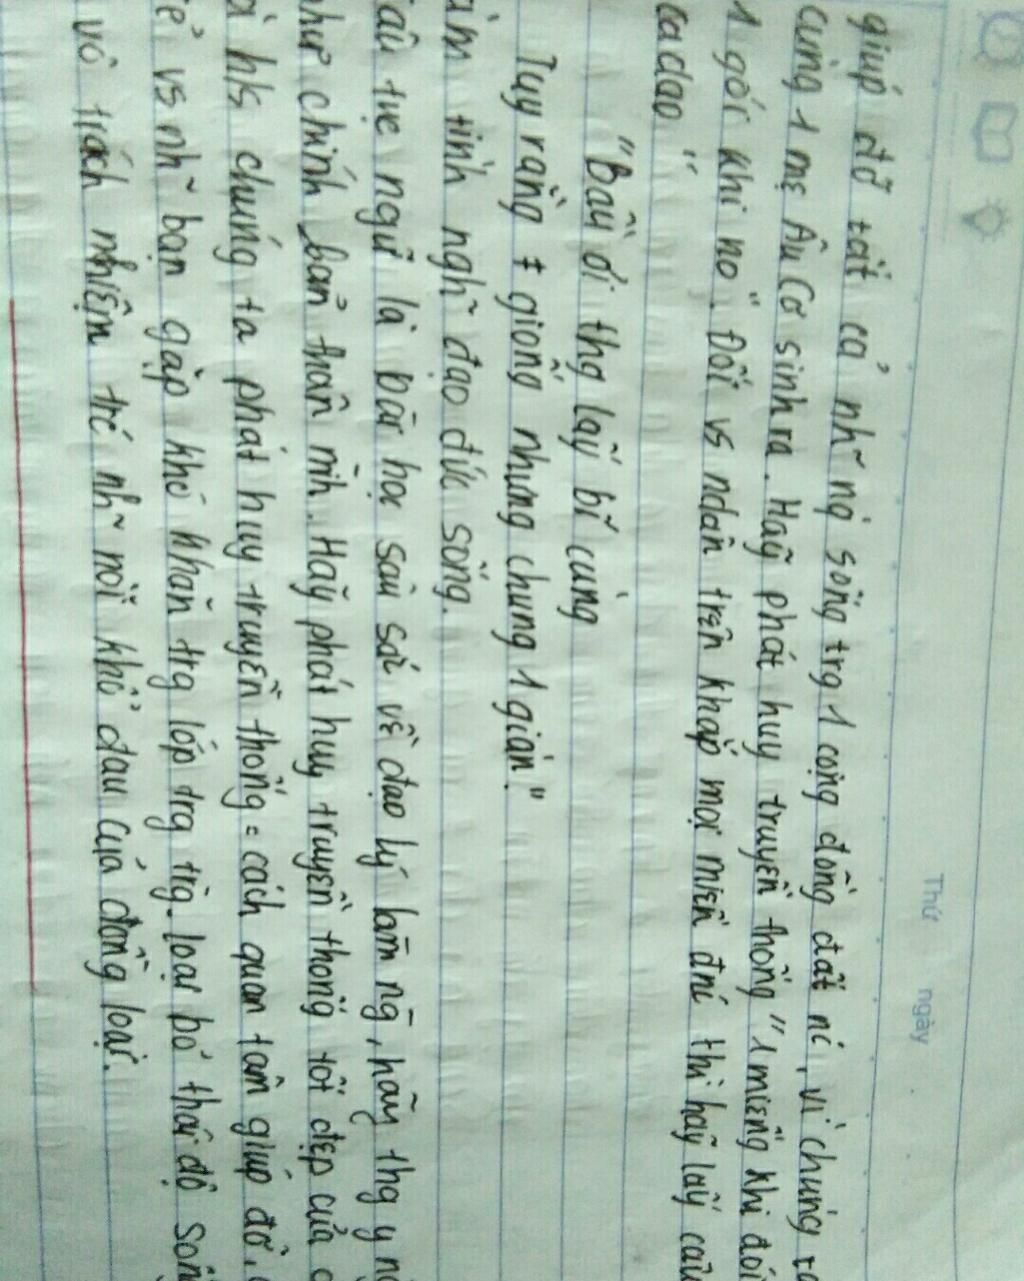 Thứ ngày
giúp đỡ tất cả nh~ ng` sống trg 1 cộng đồng đất nc, vì chúng ta
cùng 1 mẹ Âu Cơ sinh ra. Hãy phát huy truyền thống "1 miếng khi đói
1 gói khi no". Đối vs ndân trên khắp mọi miền đnc thì hãy lấy câu
ca dao "
"Bầu ơi thg lấy bí cùng
Tuy rằng ≠ giống nhưng chung 1 giàn."
tình nghĩ đạo đức sống.
tục ngữ là bài học sâu sắc về đạo lý làm ng`, hãy thg y
như chính bản thân mình. Hãy phát huy truyền thống tốt đẹp của
hs chúng ta phát huy truyền thống = cách quan tâm giúp đỡ,
vs nh~ bạn gặp khó khăn trg lớp trg trg. loại bỏ thái độ sống
vô trách nhiệm trc nh~ nỗi khổ đau của đồng loại.